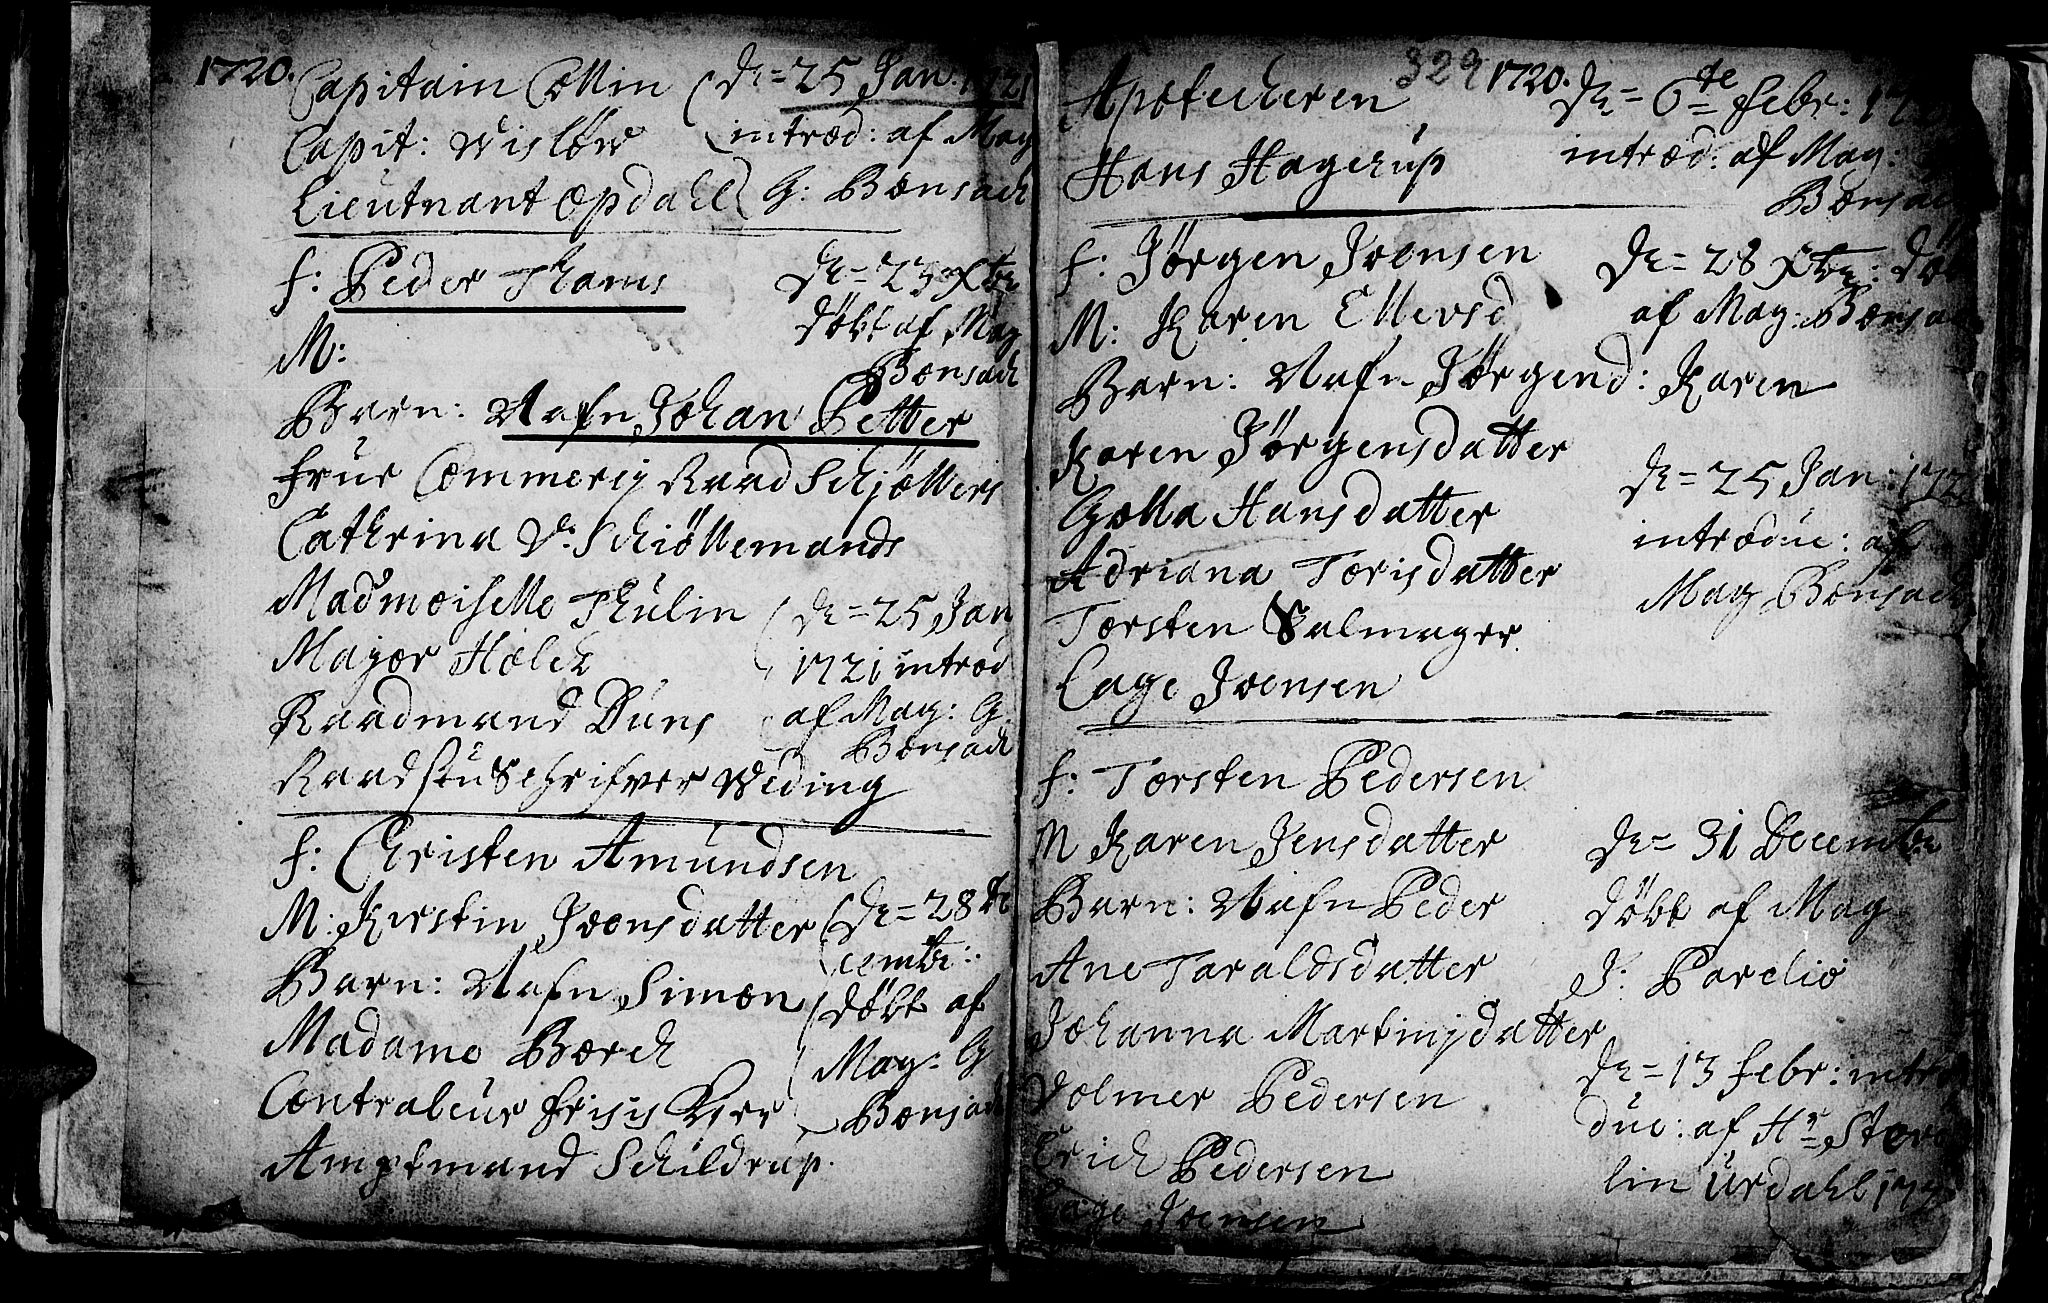 1720.
Capitain Collin
Capit: Wisløw
Lieutnant Opdahl
De = 25 Jan: 1721
introd: af Mag
G: Bonsach
f: Peder Thams
M:
De = 23 Xbr
døbt af Mag
Bonsach
Barn: Nafn Johan Petter
Frue Commercij Raad Schjøllers
Cathrina v: Schiøllemands
Madmoiselle Thulin
Major Holck
Raadmand Duns
Raadstuschrifver Weding
De = 25 Jan
1721 introd
af Mag: G.
Bonsach
f: Christen Amundsen
M: Kirstin Joensdatter
Barn: Nafn Simon
Madame Borch
Contraleur Frisis Kirr
Amptmand Schildrup.
De = 28 De
cembr:
døbt af
Mag: G
Bonsach
329
1720.
Apotecheren
Hans Hagerup
De = 6te Febr:
introd: af Mag:
Bonsach
f: Jørgen Joensen
M: Karen Ellevsd
Barn: Nafn Jørgend: Karen
De = 28 Xbr: døbt
af Mag: Bonsach
Karen Jørgensdatter
Golla Hansdatter
Adriana Torisdatter
Torsten Salmager
Lage Joensen
De = 25 Jan: 172
introduc: af
Mag Bonsach
f: Torsten Pedersen
M Karen Jensdatter
Barn: Nafn Peder
Ane Taraldsdatter
Johanna Martinjsdatter
Volmer Pedersen
Erich Pedersen
Lage Joensen
De = 31 Decembr
døbt af Mag
J: Parelio
De = 13 Febr: intro
duc: af Hr Støro
lin Urdahl